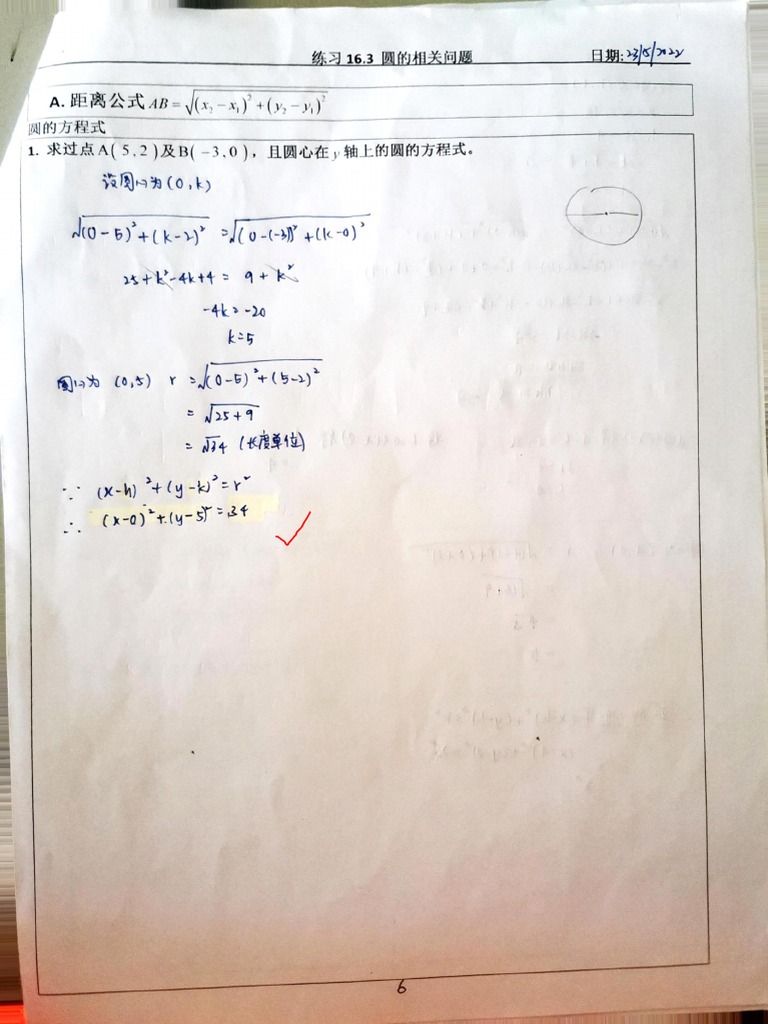 练习 16.3 圆的相关问题 日期: 23/5/2022
A. 距离公式 AB = √(x₂ − x₁)² + (y₂ − y₁)²
圆的方程式
1. 求过点 A( 5 , 2 ) 及 B( −3 , 0 )，且圆心在 y 轴上的圆的方程式。
设圆心为 (0, k)
√(0−5)² + (k−2)² = √(0−(−3))² + (k−0)²
25 + k² − 4k + 4 = 9 + k²
−4k = −20
k = 5
圆心为 (0,5) r = √(0−5)² + (5−2)²
= √25 + 9
= √34 (长度单位)
∵ (x−h)² + (y−k)² = r²
∴ (x−0)² + (y−5)² = 34
6